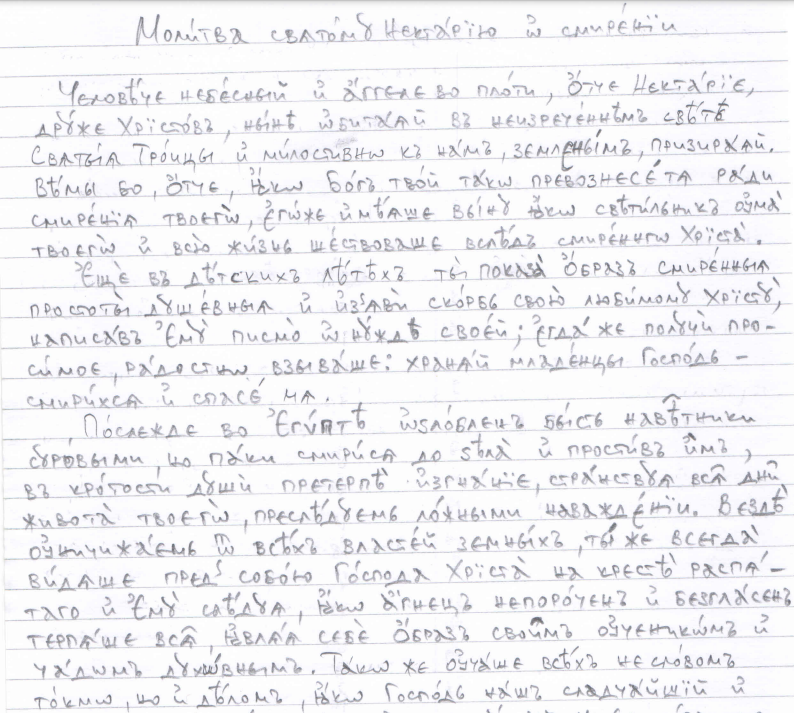 Моли́тва свѧто́мꙋ Некта́рїю ѡ҆ смире́нїи
Человѣ́че небе́сный и҆ а҆́ггеле во пло́ти, Ѻ҆́тче Некта́рїе,
дрꙋ́же Хрїсто́въ, ны́нѣ ѡ҆бита́ѧй въ неизрече́ннѣмъ свѣ́тѣ
Свѧты́ѧ Тро́ицы и҆ ми́лостивнѡ къ на́мъ, земле́ны́мъ, призира́ѧй.
Вѣ́мы бо, Ѻ҆́тче, ꙗ҆́кѡ Бо́гъ тво́й та́кѡ превознесе́ тѧ ра́ди
смире́нїѧ твоегѡ̀, є҆го́же и҆мѣ́ѧше вы́нꙋ ꙗ҆́кѡ свѣти́льникъ ᲂу҆ма̀
твоегѡ̀ и҆ всю̀ жи́знь ше́ствоваше вслѣ́дъ смире́ннагѡ Хрїста̀.
Є҆щѐ въ дѣ́тскихъ лѣ́тѣхъ ты̀ показа̀ Ѻ҆́бразъ смире́нныѧ
простоты̀ дꙋше́вныѧ и҆ и҆з̾ѧвѝ ско́рбь свою̀ люби́момꙋ Хрїстꙋ̀,
написа́въ Є҆мꙋ̀ писмо̀ ѡ҆ нꙋ́ждѣ свое́й; є҆гда́ же полꙋчѝ про-
си́мое, ра́достнѡ взыва́ше: хранѧ́й младе́нцы Госпо́дь -
смири́хсѧ и҆ спасе́ мѧ.
По́слежде во Є҆гѵ́птѣ ѡ҆ѕло́бленъ бы́сть навѣ̑тники
сꙋро́выми, но па́ки смири́сѧ до ѕѣла̀ и҆ прости́въ и҆̀мъ,
въ кро́тости дꙋшѝ претерпѣ̀ и҆згна́нїе, стра́нствꙋѧ всѧ̑ дни̑
живота̀ твоегѡ̀, преслѣ́дꙋемь ло́жными наважде́нїи. Вездѣ̀
ᲂу҆ничижа́емь ѿ всѣ́хъ власте́й земны́хъ, ты́ же всегда̀
ви́дѧше пред̾ собо́ю Го́спода Хрїста̀ на крестѣ̀ распѧ́-
таго и҆ Є҆мꙋ̀ слѣ́дꙋѧ, ꙗ҆́кѡ а҆́гнецъ непоро́ченъ и҆ безгла́сенъ
терпѧ́ше всѧ̑, ꙗ҆влѧ́ѧ себѐ Ѻ҆́бразъ свои̑мъ ᲂу҆ченикѡ́мъ и҆
ча́дѡмъ дꙋхѡ́внымъ. Та́кѡ же ᲂу҆ча́ше всѣ́хъ не сло́вомъ
то́кмѡ, но и҆ дѣ́ломъ, ꙗ҆́кѡ Госпо́дь на́шъ сладча́йшїй и҆